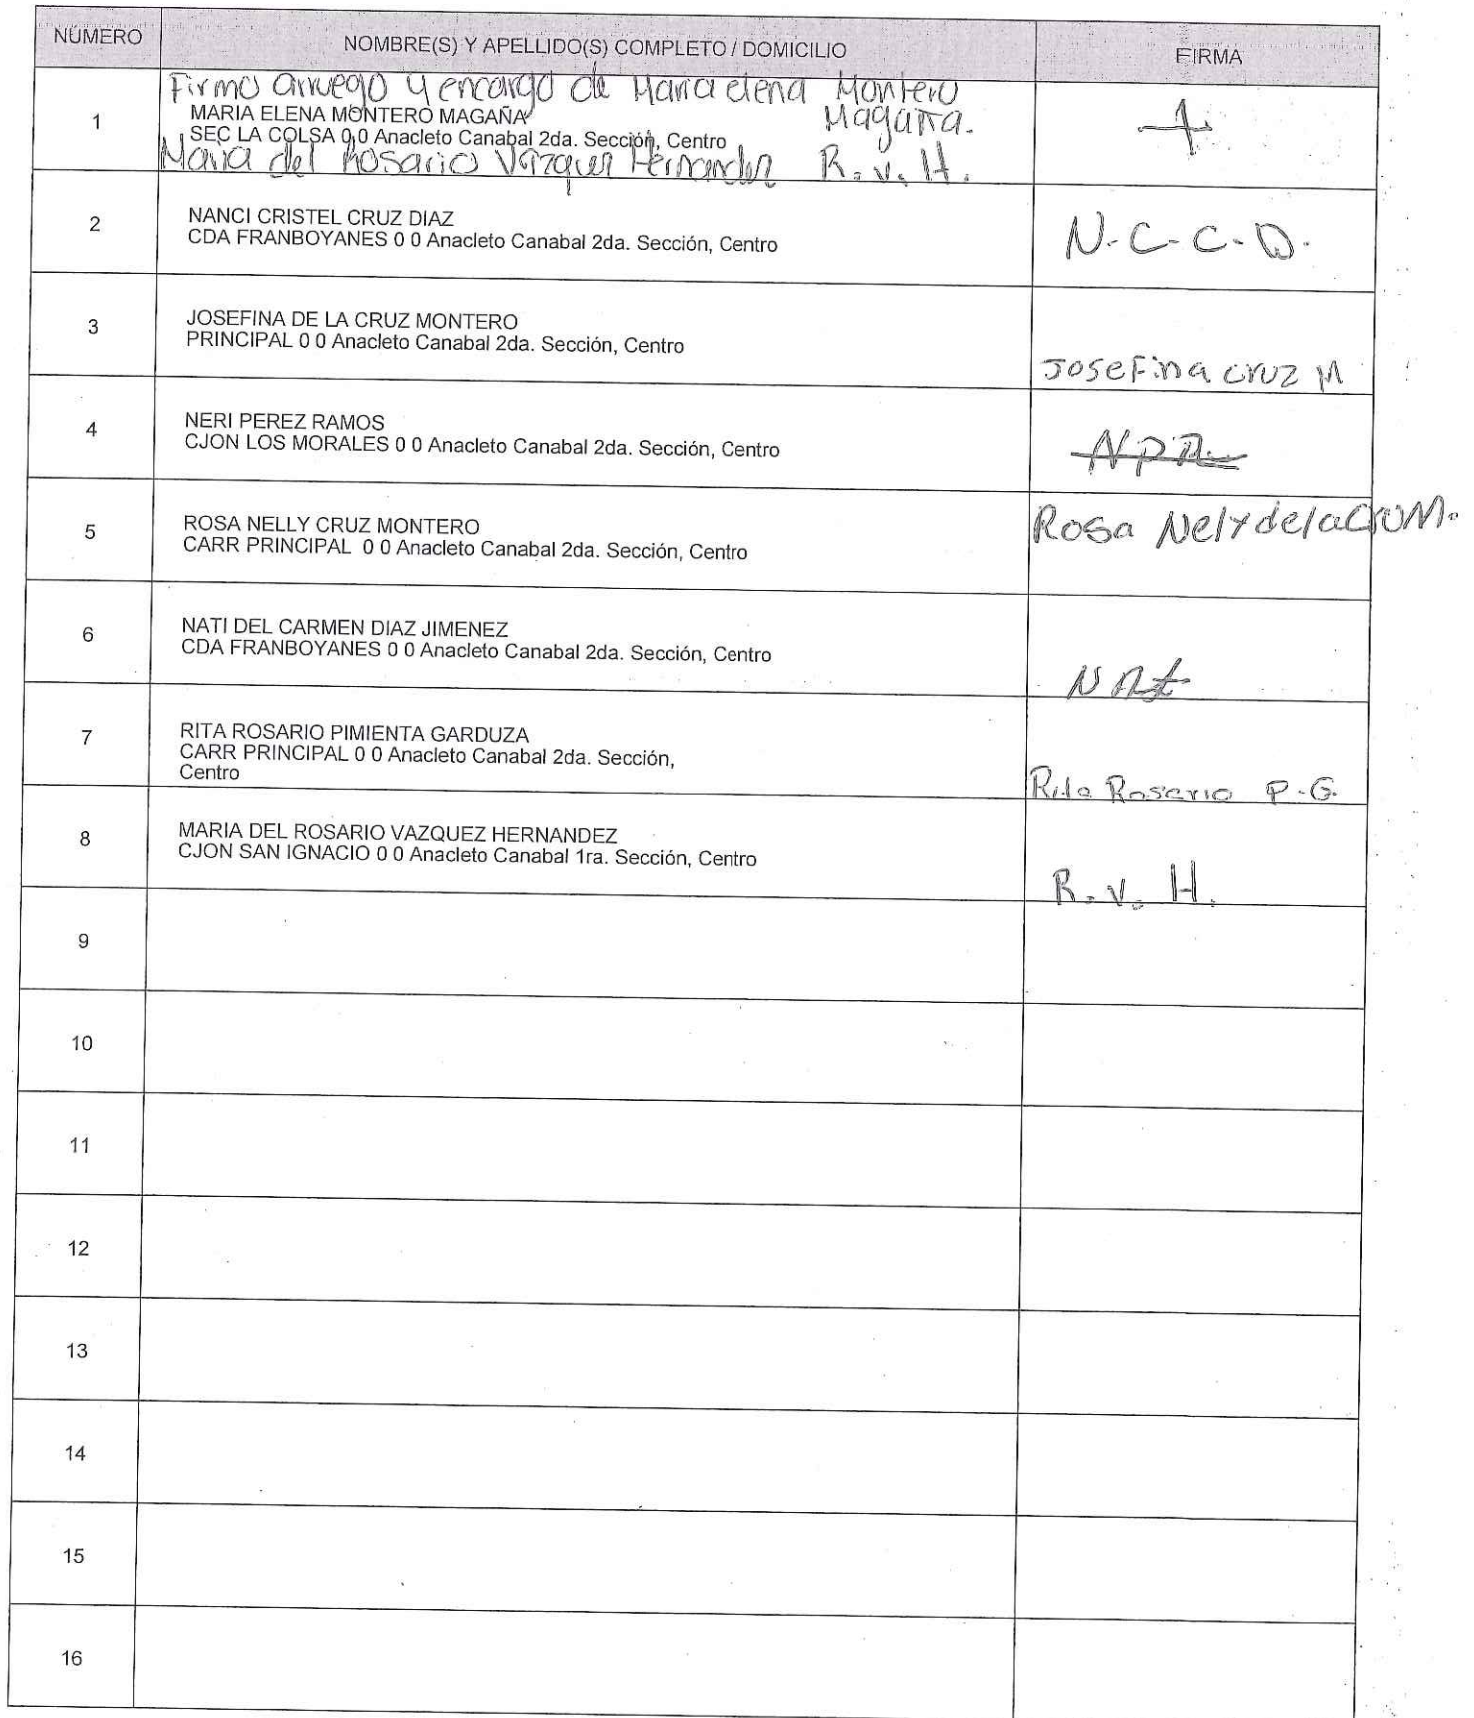 NÚMERO NOMBRE(S) Y APELLIDO(S) COMPLETO / DOMICILIO FIRMA
Firmo arruego y encargo de Maria elena Montero
1 MARIA ELENA MONTERO MAGAÑA Magaña.
SEC LA COLSA 0 0 Anacleto Canabal 2da. Sección, Centro
Maria del Rosario Vázquez Hernandez R. v. H.
2 NANCI CRISTEL CRUZ DIAZ
CDA FRANBOYANES 0 0 Anacleto Canabal 2da. Sección, Centro N.C.C.D.
3 JOSEFINA DE LA CRUZ MONTERO
PRINCIPAL 0 0 Anacleto Canabal 2da. Sección, Centro
Josefina cruz M
4 NERI PEREZ RAMOS
CJON LOS MORALES 0 0 Anacleto Canabal 2da. Sección, Centro NPR
5 ROSA NELLY CRUZ MONTERO Rosa Nely de la CruM.
CARR PRINCIPAL 0 0 Anacleto Canabal 2da. Sección, Centro
6 NATI DEL CARMEN DIAZ JIMENEZ
CDA FRANBOYANES 0 0 Anacleto Canabal 2da. Sección, Centro
NAt
7 RITA ROSARIO PIMIENTA GARDUZA
CARR PRINCIPAL 0 0 Anacleto Canabal 2da. Sección,
Centro
Rita Rosario P.G.
8 MARIA DEL ROSARIO VAZQUEZ HERNANDEZ
CJON SAN IGNACIO 0 0 Anacleto Canabal 1ra. Sección, Centro
R. v. H.
9
10
11
12
13
14
15
16